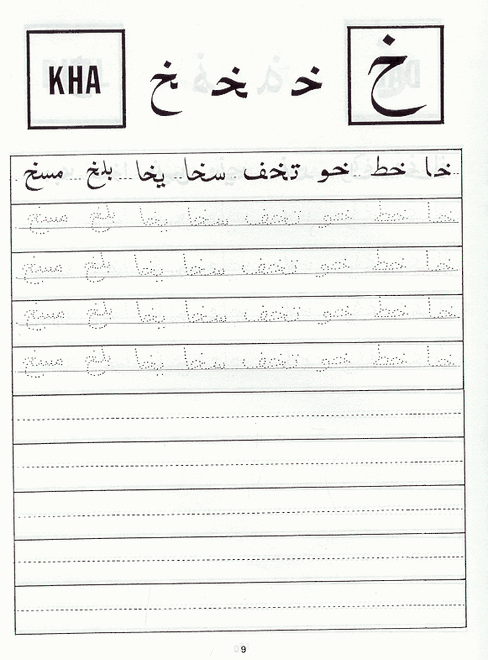 KHA خ خـ ـخـ ـخ
خا خط خو تخف سخا يخا بلخ مسخ
خا خط خو تخف سخا يخا بلخ مسخ
خا خط خو تخف سخا يخا بلخ مسخ
خا خط خو تخف سخا يخا بلخ مسخ
خا خط خو تخف سخا يخا بلخ مسخ
9